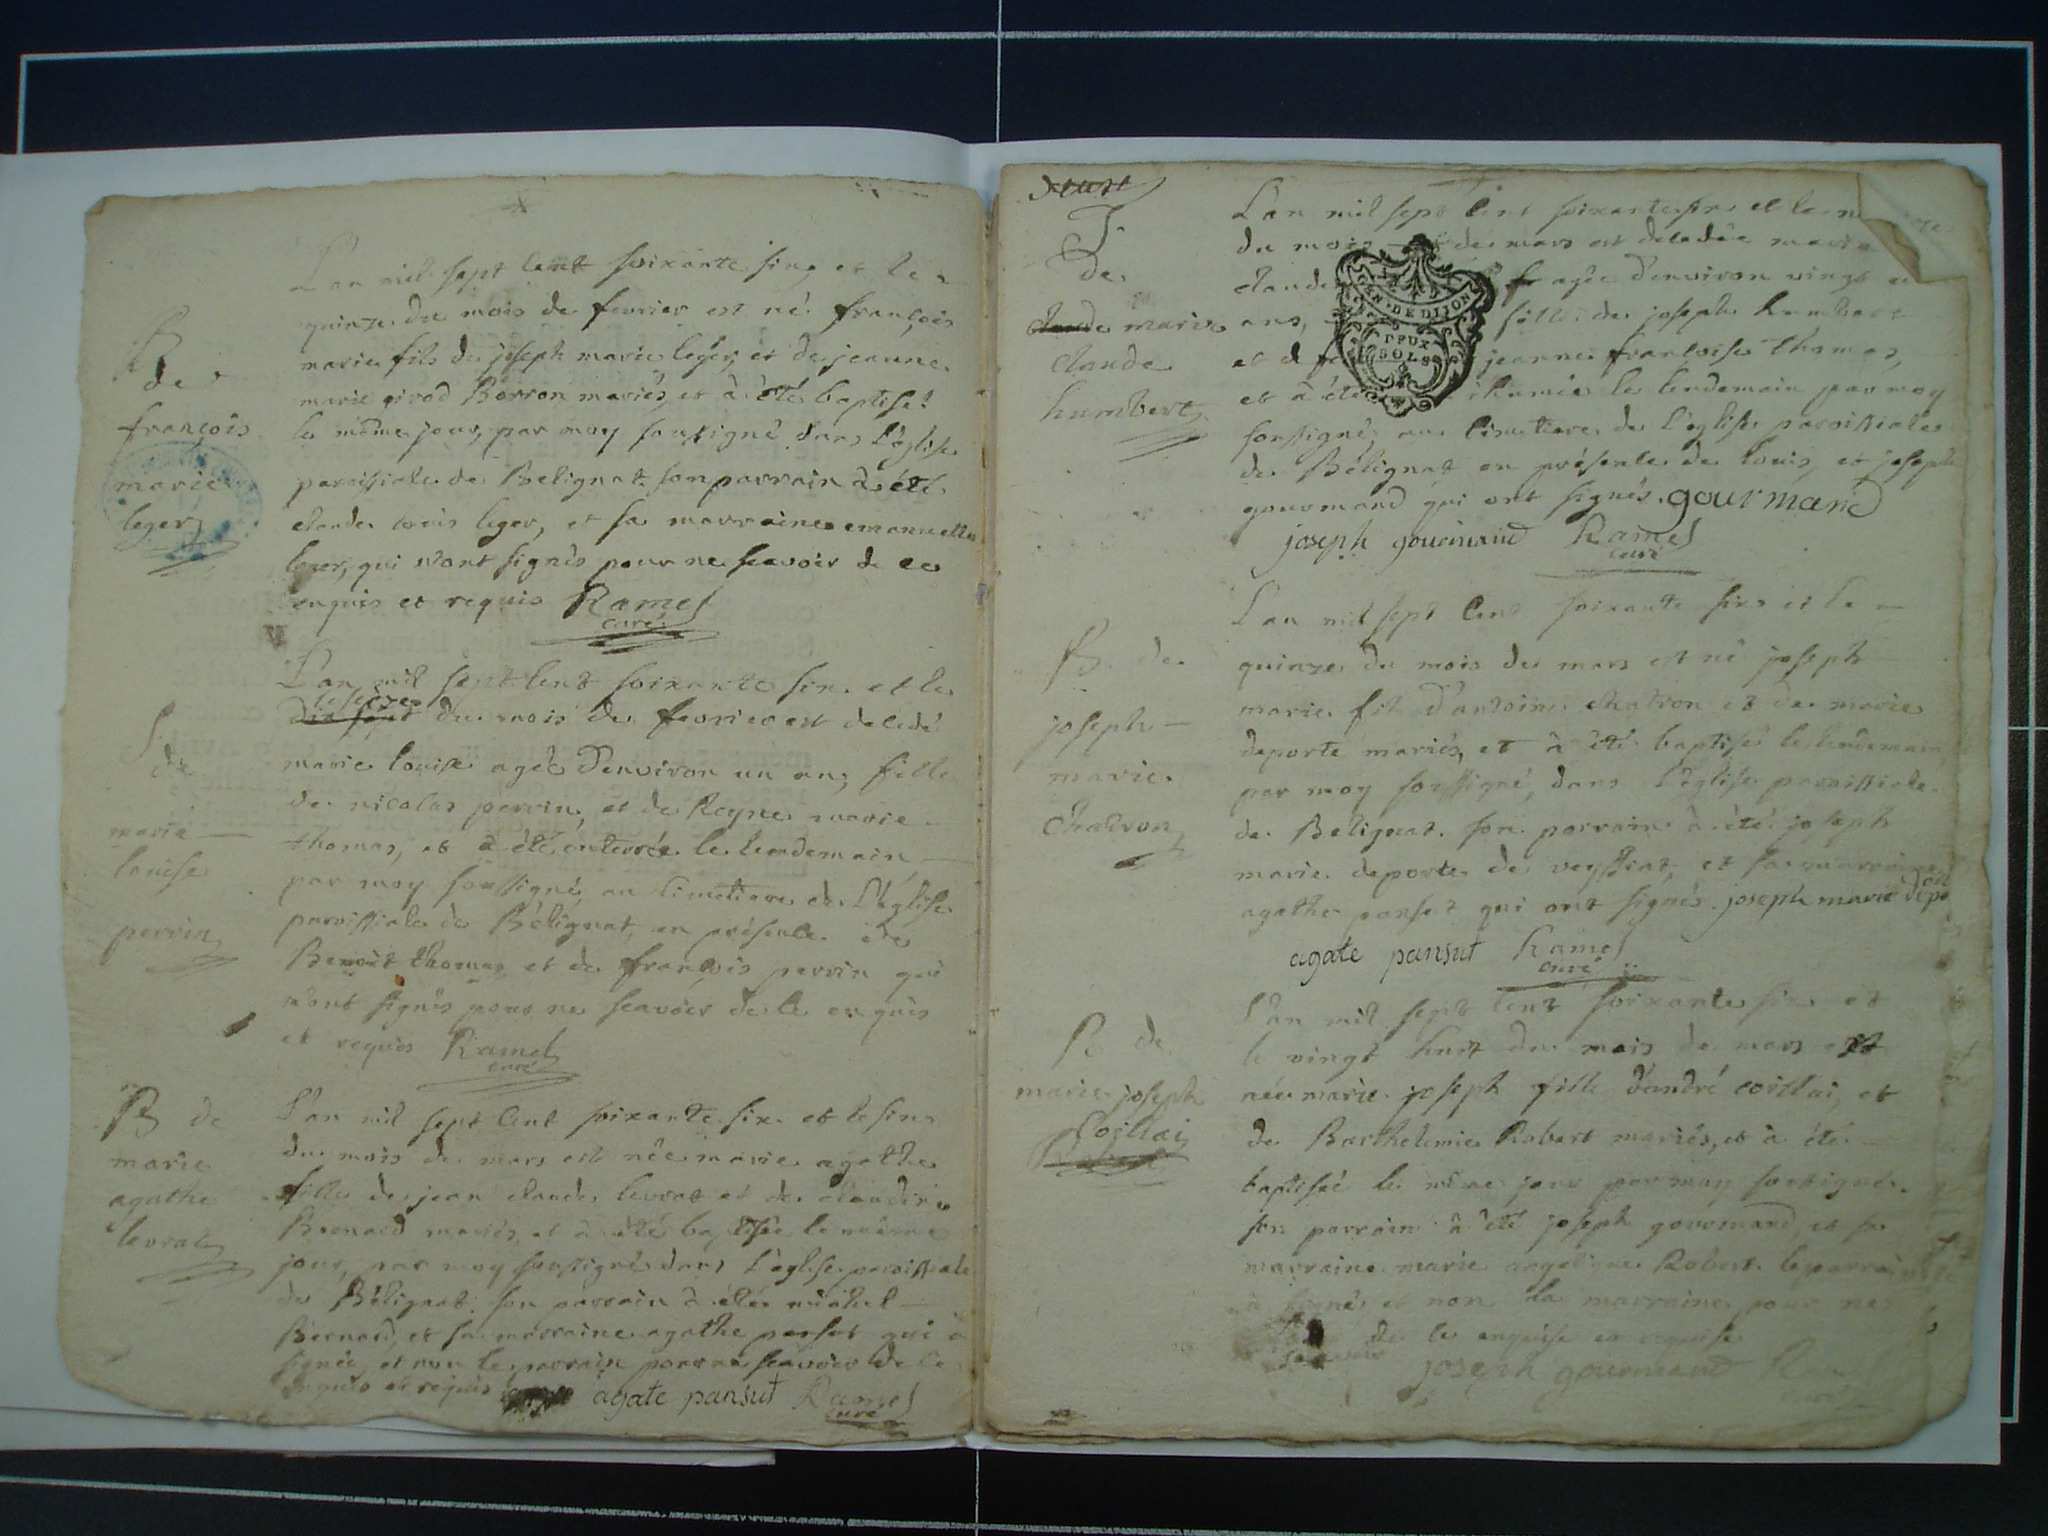 B
de
françois
marie
leger
L'an mil sept cent soixante six, et le
quinze du mois de fevrier est né françois
marie fils de joseph marie leger, et de jeanne
marie girod Borron mariés, et à été baptisé
le même jour, par moy soussigné dans l'église
paroissiale de Belignat son parrain à été
claude louis leger, et sa marraine emanuelle
leger, qui n'ont signés pour ne scavoir de ce
enquis et requis Ramel
curé
S
de
marie
louise
perrin
L'an mil sept cent soixante six et le
le seize
dix sept du mois de fevrier est decedé
marie louise agée d'environ un an, fille
de nicolas perrin, et de Reyne marie
thomas, et à été enterrée le lendemain,
par moy soussigné, au cimetiere de l'église
paroissiale de Bélignat, en présence de
Benoit thomas et de françois perrin qui
n'ont signés pour ne scavoir de ce enquis
et requis Ramel
curé
B de
marie
agathe
levrat
L'an mil sept cent soixante six et le sinq
du mois de mars est née marie agathe
fille de jean claude levrat et de claudine
Bernard mariés, et à été baptisée le même
jour, par moy soussigné dans l'église paroissiale
de Bélignat. son parrain à été michel
Bernard, et sa marraine agathe pansut qui à
signée, et non le parrain pour ne scavoir de ce
enquis et requis agate pansut Ramel
curé
S
de
claude marie
claude
humbert
L'an mil sept cent soixante six et le
du mois de mars est decedée marie
claude agée d'environ vingt
ans, fille de joseph humbert
et de jeanne françoise thomas,
et à été inhumée le lendemain par moy
soussigné, au cimetiere de l'église paroissiale
de Bélignat en présence de louis, et joseph
gourmand qui ont signés. gourmand
joseph gourmand Ramel
curé
GEN. DE DIJON
DEUX
SOLS
B de
joseph
marie
Chatron
L'an mil sept cent soixante six et le
quinze du mois de mars est né joseph
marie fils d'antoine chatron et de marie
deporte mariés, et à été baptisé le lendemain
par moy soussigné, dans l'église paroissiale
de Belignat. son parrain à été joseph
marie deporte de veyssiat, et sa marraine
agathe pansut qui ont signés. joseph marie depo
agate pansut Ramel
curé
B de
marie joseph
Coillai
L'an mil sept cent soixante six et
le vingt huit du mois de mars est
née marie joseph fille d'andré coillai, et
de Barthelemie Robert mariés, et à été
baptisée le même jour par moy soussigné.
son parrain à été joseph gourmand, et sa
marraine marie angelique Robert. le parrain
à signé, et non la marraine pour ne
scavoir de ce enquise et requise
joseph gourmand
curé